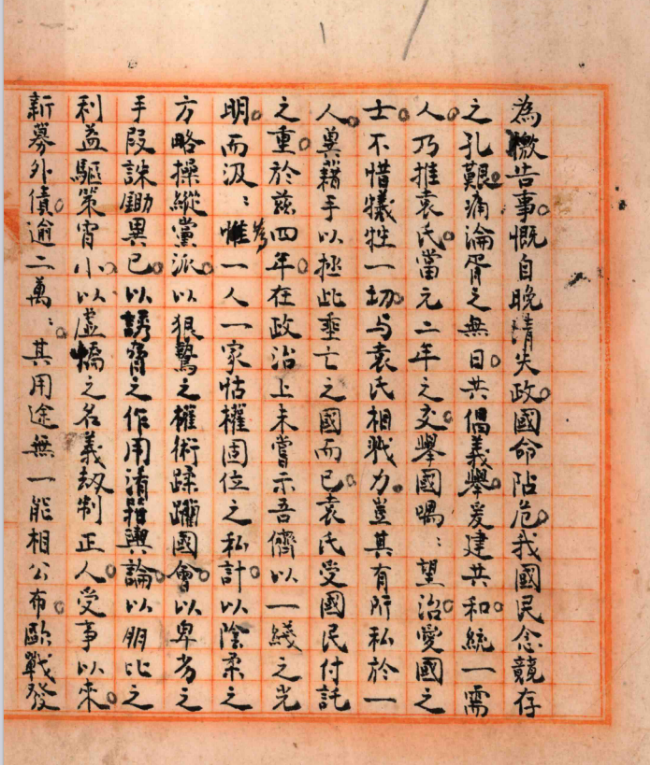 為檄告事。慨自晚清失政。國命阽危。我國民念競存
之孔艱。痛淪胥之無日。共倡義舉。爰建共和。統一需
人。乃推袁氏。當元二年之交。舉國喁〻望治。愛國之
士。不惜犧牲一切。与袁氏相戮力。豈其有所私於一
人。冀藉手以拯此垂亡之國而已。袁氏受國民付託
之重。於茲四年。在政治上未嘗示吾儕以一綫之光
明。而汲〻惟一人一家怙權固位之私計。以陰柔之
方略操縱黨派。以狠鷙之權術蹂躪國會。以卑劣之
手段誅鋤異己。以誘脅之作用淆箝輿論。以朋比之
利益驅策宵小。以虛憍之名義劫制正人。受事以來。
新募外債。逾二萬〻。其用途無一能相公布。歐戰發